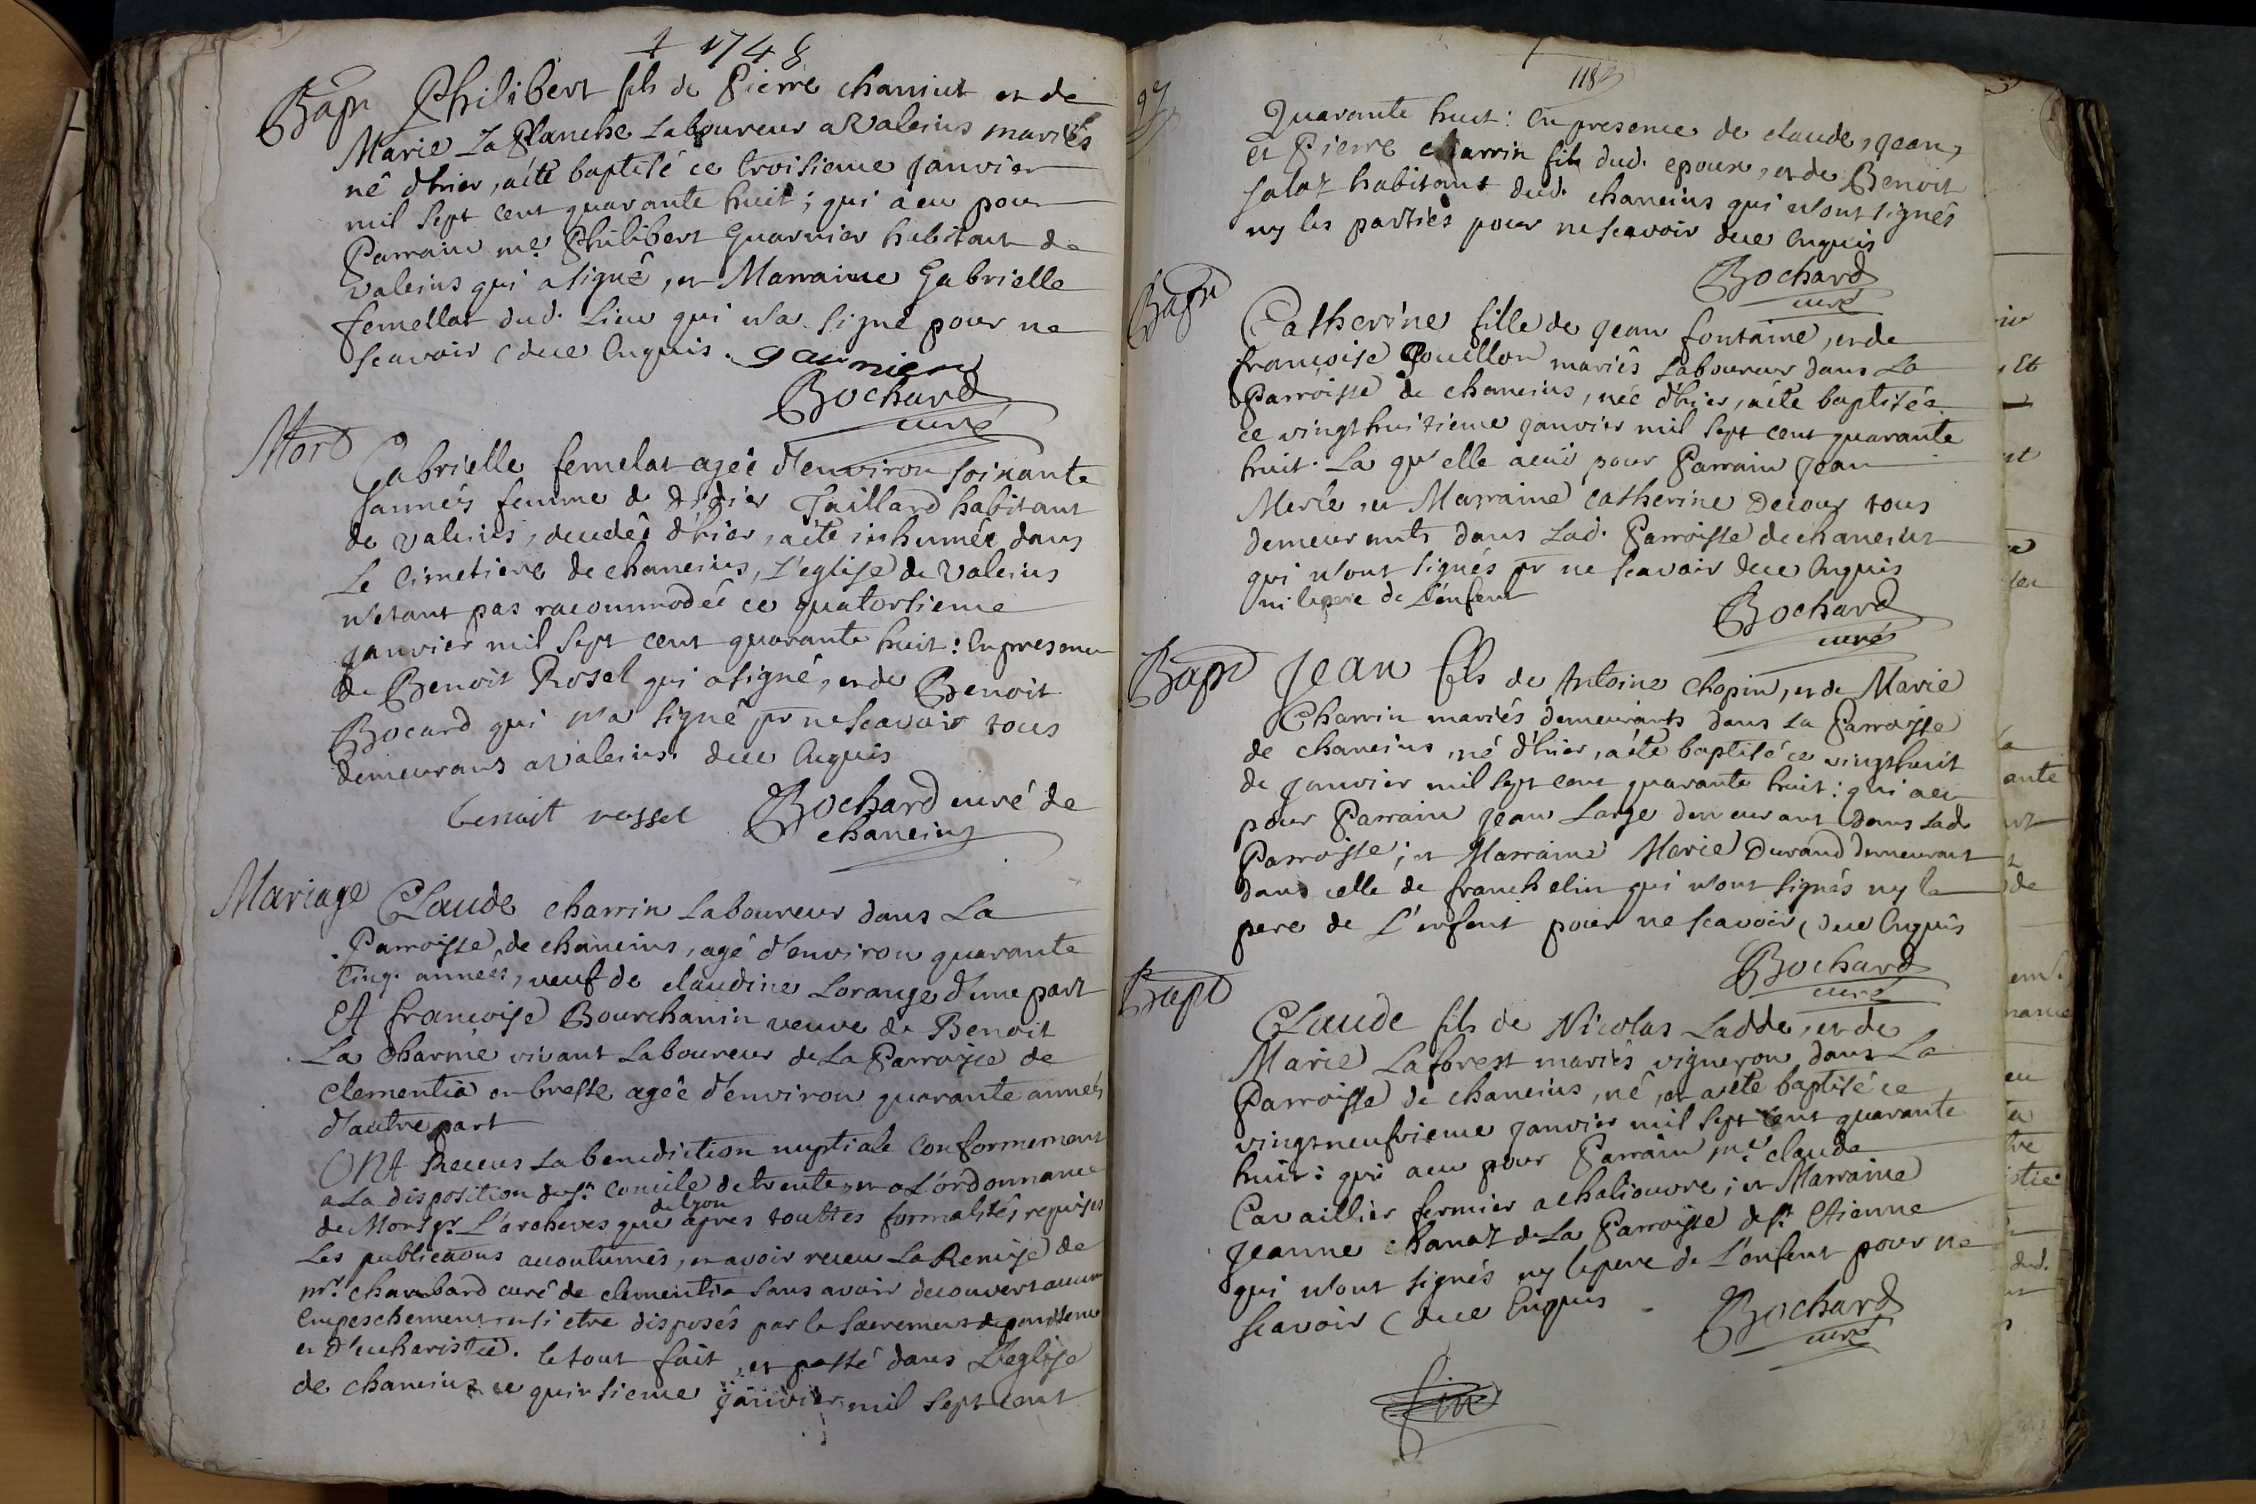 1748
Bapt Philibert fils de Pierre chaniut et de
Marie La Planche Laboureur a Valeins mariés
né d'hier, a été baptisé ce troisieme janvier
mil sept cent quarante huit; qui a eu pour
Parrain me. Philibert Guarnier habitant de
valeins qui a signé, et Marraine Gabrielle
femellat dud. Lieu qui n'a signé pour ne
scavoir (deue enquis. garnier
Bochard
curé
Mort
Gabrielle femelat agée d'environ soixante
années femme de didier Taillard habitant
de valeins, decedée d'hier, a été inhumée dans
Le Cimetiere de chaneins, L'eglise de Valeins
n'étant pas racommodée ce quatorsieme
janvier mil sept cent quarante huit: en presence
de Benoit Rosel qui a signé, et de Benoit
Bocard qui n'a signé pr ne scavoir tous
demeurans a valeins. deue enquis
benoit rossel Bochard curé de
chaneins
Mariage Claude charrin Laboureur dans La
Parroisse de chaneins, agé d'environ quarante
cinq. années, veuf de claudine Lorange d'une part
Et francoise Bourchanin veuve de Benoit
La Charme vivant Laboureur de La Parroisse de
clementia en bresse agée d'environ quarante années
d'autre part
ONt Receus La benediction nuptiale conformement
a La disposition du st. concile de trente, et a L'ordonnance
de Monsgr. L'archevesque de lyon apres touttes formalités requises
Les publications acoutumés, et avoir receu La Remise de
mr. chambard curé de clementia sans avoir decouvert aucun
empeschement, et si etre disposés par le sacrement de penitence
et d'eucharistie. le tout fait, et passé dans L'eglise
de chaneins ce quinsieme janvier mil sept cent
97
118
Quarante huit: en presence de claude, jean,
et Pierre charrin fils dud. epoux, et de Benoit
salaz habitant dud. chaneins qui n'ont signés
ny les parties pour ne scavoir deue enquis
Bochard
curé
Bapt
Catherine fille de jean fontaine, et de
francoise Pouillon mariés Laboureur dans La
Parroisse de chaneins, née d'hier, a été baptisée
ce vingthuitieme janvier mil sept cent quarante
huit. La qu'elle a eüe pour Parrain jean
Merle, et Marraine catherine Decour tous
demeurants dans Lad. Parroisse de chaneins
qui n'ont signés pr ne scavoir deue enquis
ni le pere de L'enfent
Bochard
curé
Bapt Jean fils de Antoine chopin, et de Marie
Charrin mariés demeurants dans La Parroisse
de chaneins, né d'hier, a été baptisé ce vingthuit
de janvier mil sept cent quarante huit: qui a eu
pour Parrain jean Large demeurant dans Lad.
Parroisse; et Marraine Marie Durand demeurant
dans celle de franchelin qui n'ont signés ny le
pere de L'enfent pour ne scavoir (deue enquis
Bochard
curé
Bapt
Claude fils de Nicolas Ladde, et de
Marie Laforest mariés vigneron dans La
Parroisse de chaneins, né, et a été baptisé ce
vingtneufvieme janvier mil sept cent quarante
huit: qui a eu pour Parrain me. claude
Cavaillier fermier a chaliouvre; et Marraine
jeanne chanaz de La Parroisse de st. Etienne
qui n'ont signés ny le pere de L'enfent pour ne
scavoir (deue enquis - Bochard
curé
fin